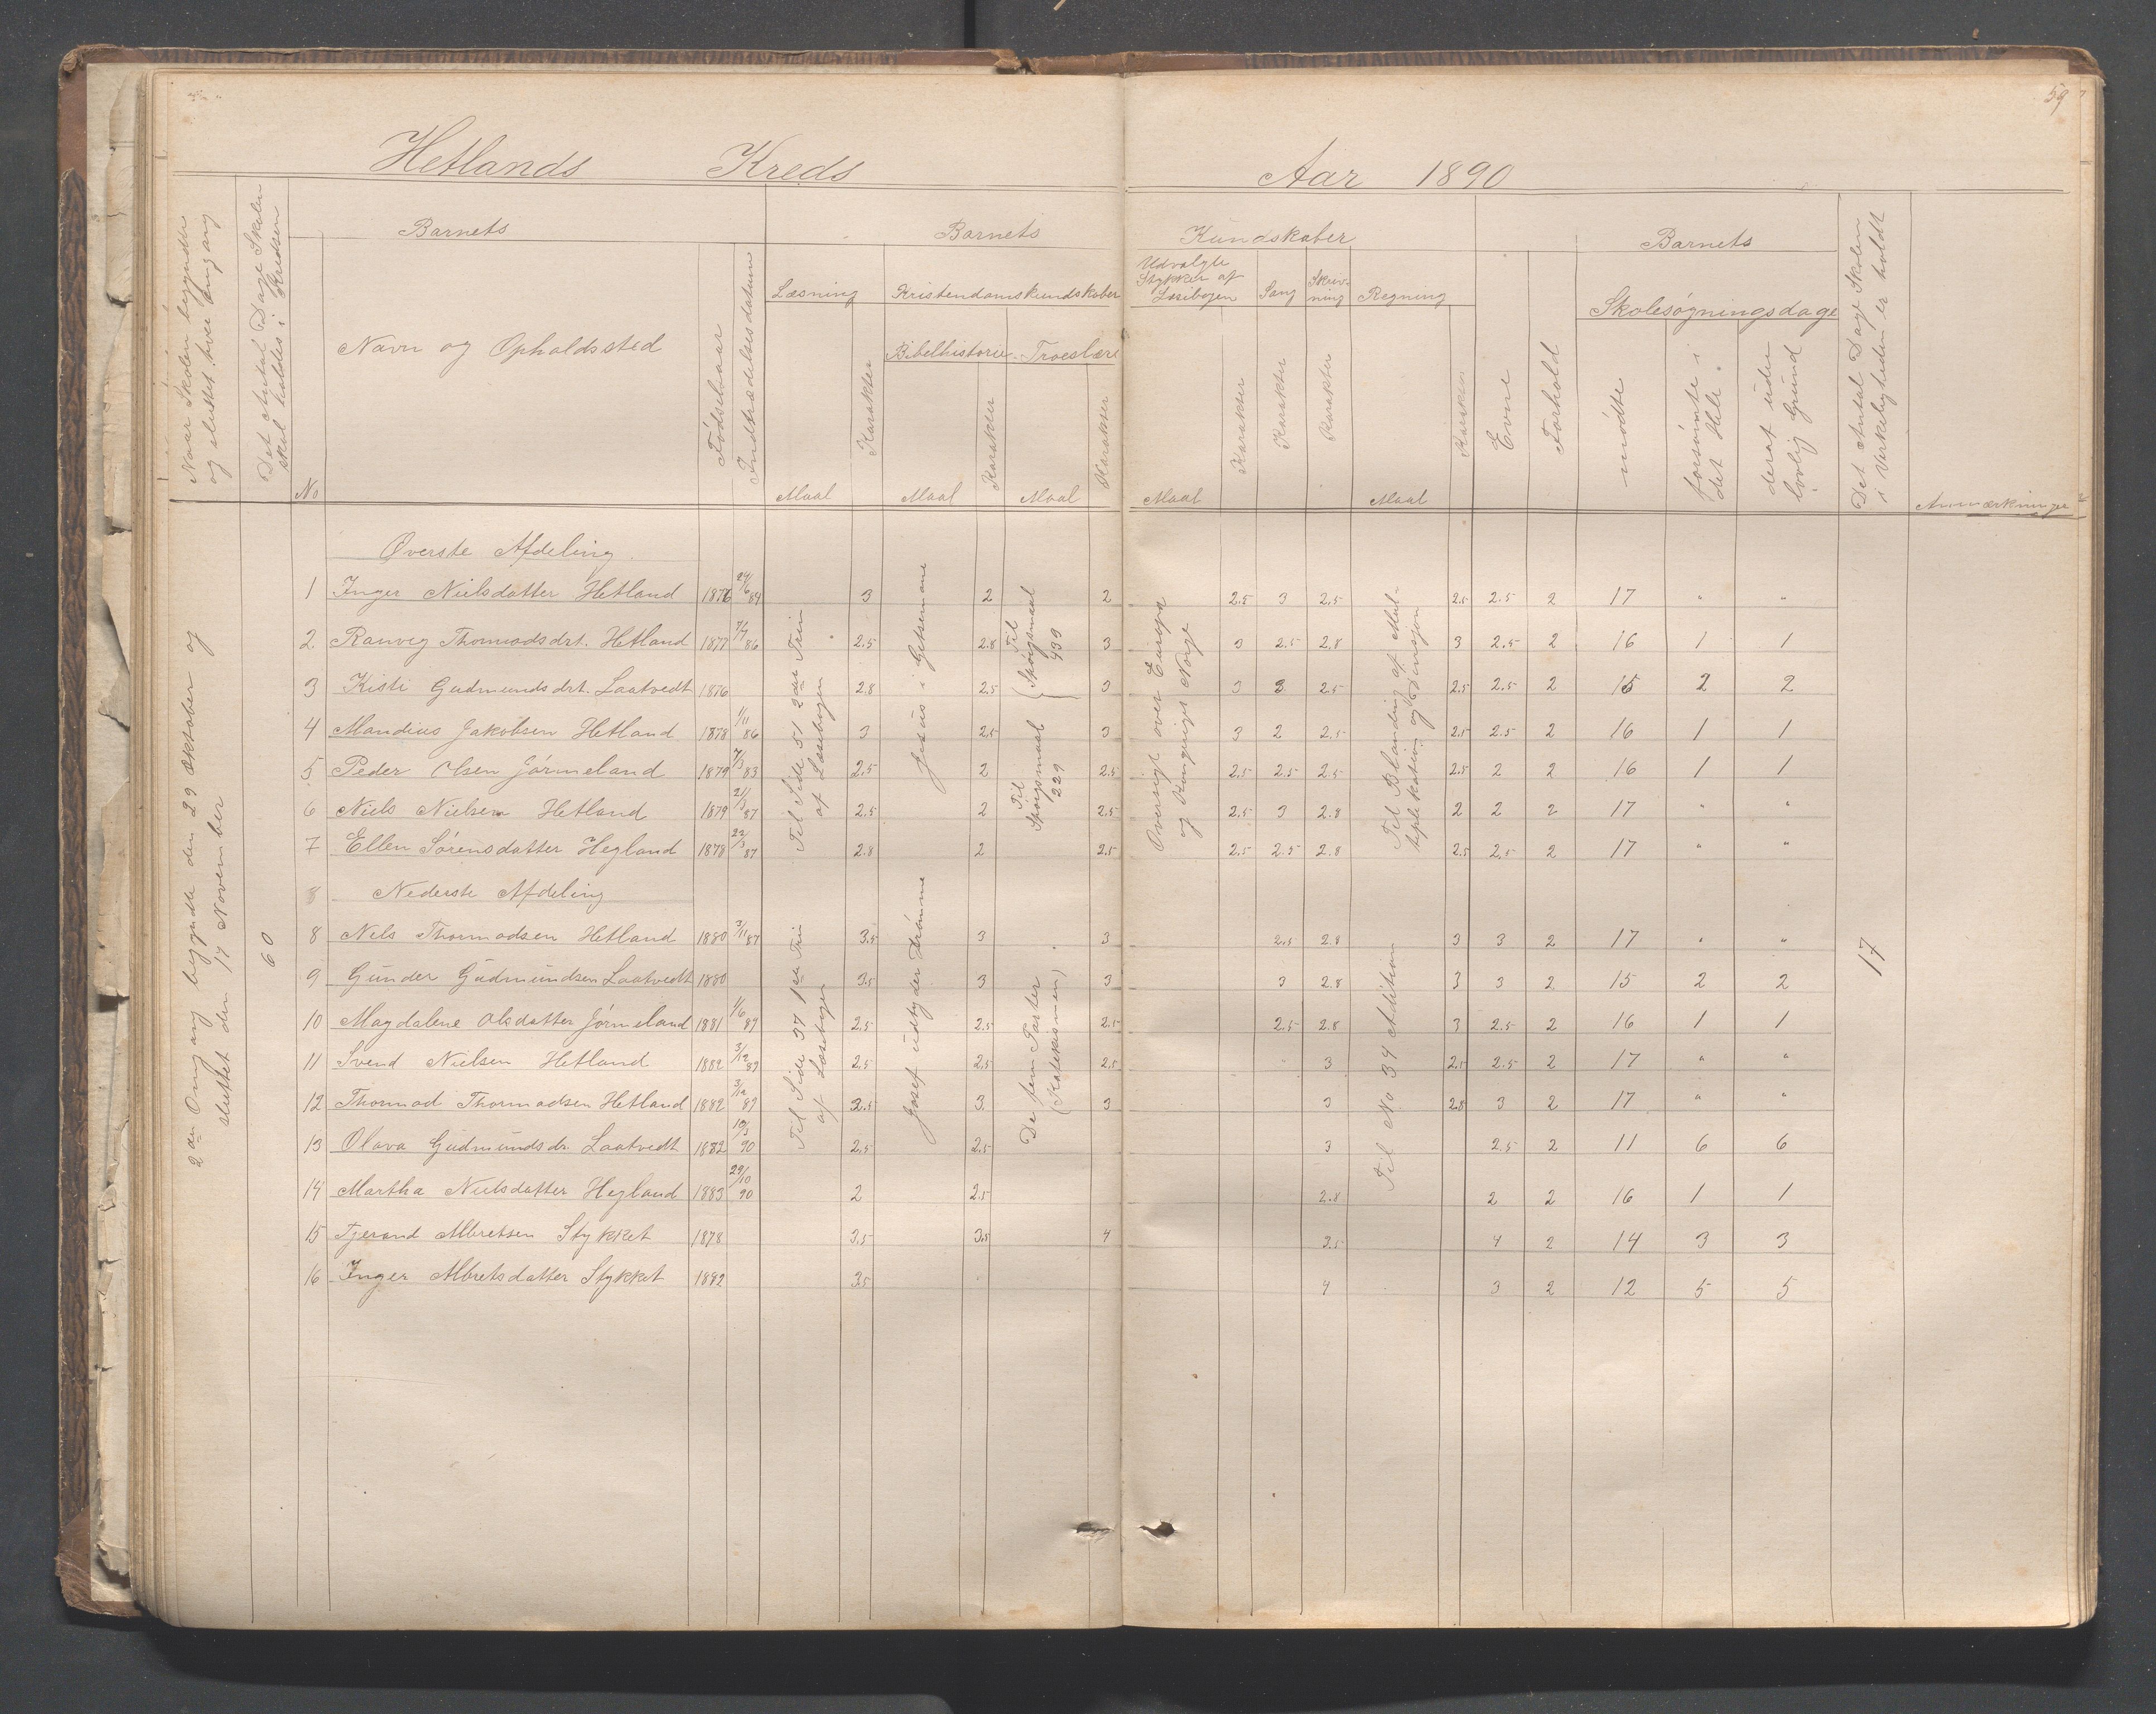 59
Hetlands Kreds Aar 1890
Naar Skolen begyndte og sluttet hver Omgang
Det Antal Dage Skolen skal holdes i Kredsen
Barnets
No
Navn og Opholdssted
Fødselsaar
Indtrædelsesdatum
Barnets Kundskaber
Læsning
Maal
Karakter
Kristendomskundskaber
Bibelhistorie
Maal
Karakter
Troeslære
Maal
Karakter
Udvalgte Stykker af Læsebogen
Maal
Karakter
Sang
Karakter
Skriv-
ning
Karakter
Regning
Maal
Karakter
Barnets
Evne
Forhold
Skolesøgningsdage
mødte
forsømte i det Hele
deraf uden lovlig Grund
Det Antal Dage Skolen i Virkeligheden er holdt
Anmærkninger
2den Omgang begyndte den 29 Oktober og
sluttet den 17 November
60
Øverste Afdeling
1 Inger Nielsdatter Hetland 1876 24/6 84 3 2 2 2.5 3 2.5 2.5 2.5 2 17 " "
2. Ranveg Thormodsdrt. Hetland 1877 7/7 86 2.5 2.8 3 3 2.5 2.8 3 2.5 2 16 1 1
3 Kisti Gudmundsdrt. Laatvedt 1876 2.8 2.5 3 3 3 2.5 2.5 2.5 2 15 2 2
4 Mandius Jakobsen Hetland 1878 1/11 86 3 2.5 3 3 2 2.5 2.5 2.5 2 16 1 1
5 Peder Olsen Jørmeland 1879 7/3 83 2.5 2 2.5 2.5 2.5 2.5 2.5 2 2 16 1 1
6 Niels Nielsen Hetland 1879 21/3 87 2.5 2 2.5 2.5 3 2.8 2 2 2 17 " "
7 Ellen Sørensdatter Hegland 1878 22/3 87 2.8 2 2.5 2.5 2.5 2.8 2.5 2.5 2 17 " "
Til Side 51 2det Trin
af Læsebogen
Jesus i Getsemane
Til
Spørgsmaal
439
Til
Spørgsmaal
229
Oversigt over Europa
og Kongeriget Norge
Til Blanding af Mul-
tiplekation og Divisjon
8 Nederste Afdeling
8 Nels Thormodsen Hetland 1880 3/11 87 3.5 3 3 2.5 2.8 3 3 2 17 " "
9 Gunder Gudmundsen Laatvedt 1880 3.5 3 3 3 2.8 3 3 2 15 2 2
10 Magdalene Olsdatter Jørmeland 1881 1/6 89 2.5 2.5 2.5 2.5 2.8 3 2.5 2 16 1 1
11 Svend Nielsen Hetland 1882 3/12 89 2.5 2.5 2.5 3 2.5 2.5 2 17 " "
12 Thormod Thormodsen Hetland 1882 3/12 89 3.5 3 3 3 2.8 3 2 17 " "
13 Olava Gudmundsdr. Laatvedt 1882 10/3 90 2.5 2.5 3 2.5 2 11 6 6
14 Martha Nielsdatter Hegland 1883 29/10 90 2 2.5 2.8 2 2 16 1 1
15 Tjerand Albretsen Stykket 1878 3.5 3.5 4 3.5 4 2 14 3 3
16 Inger Albretsdatter Stykket 1882 3.5 4 3 2 12 5 5
Til Side 37 1ste Trin
af Læsebogen
Josef udtyder Drømme
De fem Parter
(Katekismen)
Til No 34 Addition
17